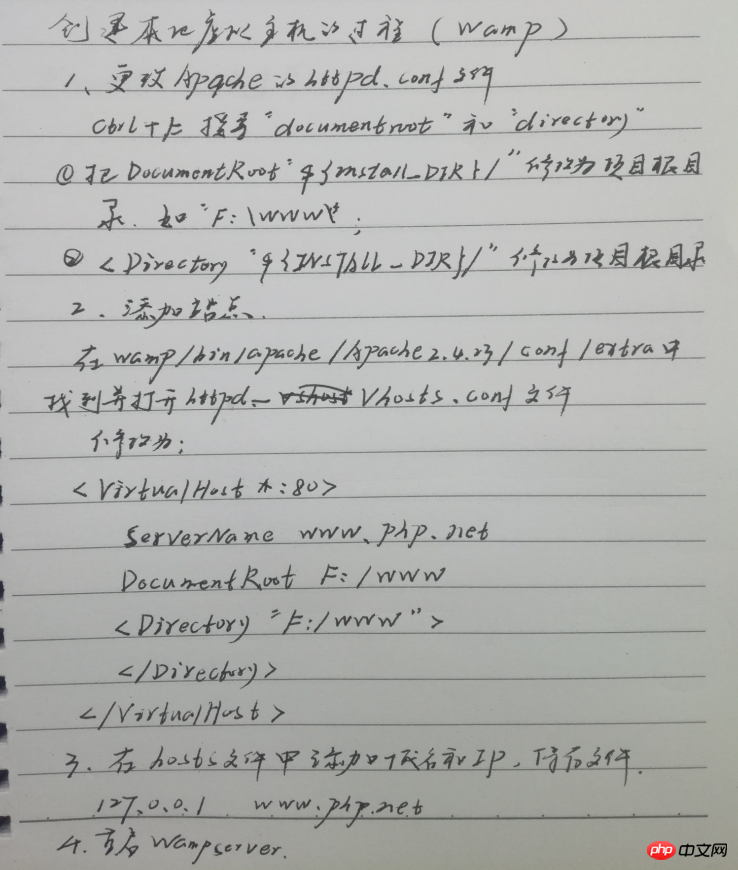 创建本地虚拟主机的过程 (wamp)
1、更改Apache的httpd.conf文件
Ctrl+F 搜寻 "documentroot" 和 "directory"
① 把 DocumentRoot "${Install_DIR}/" 修改为项目根目
录. 如 "F:\WWW\";
② <Directory "${INSTALL_DIR}/" 修改为项目根目录
2. 添加站点.
在wamp/bin/apache/Apache2.4.23/conf/extra中
找到并打开httpd- Vhosts.conf 文件
修改为:
<VirtualHost *:80>
ServerName www.php.net
DocumentRoot F:/www
<Directory "F:/www">
</Directory>
</VirtualHost>
3. 在hosts文件中添加域名和IP, 保存文件.
127.0.0.1 www.php.net
4. 重启 Wampserver.
php 中文网